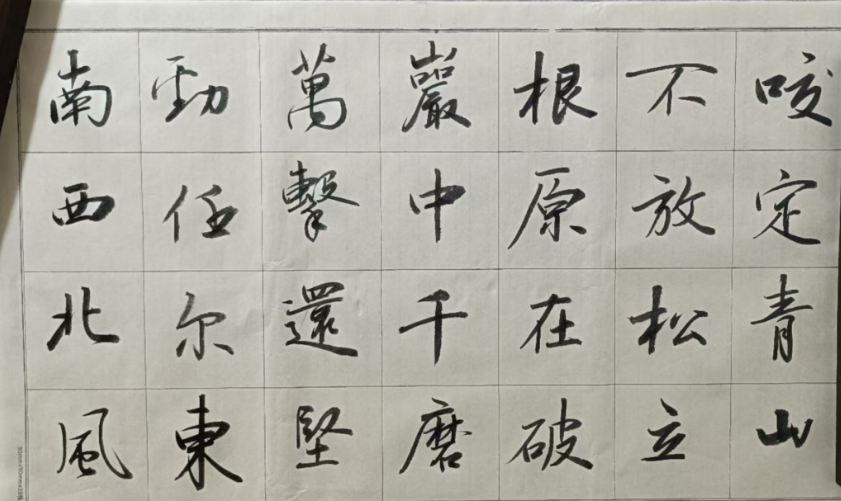 咬定青山
不放松立
根原在破
巖中千磨
萬擊還堅
勁任尔東
南西北風